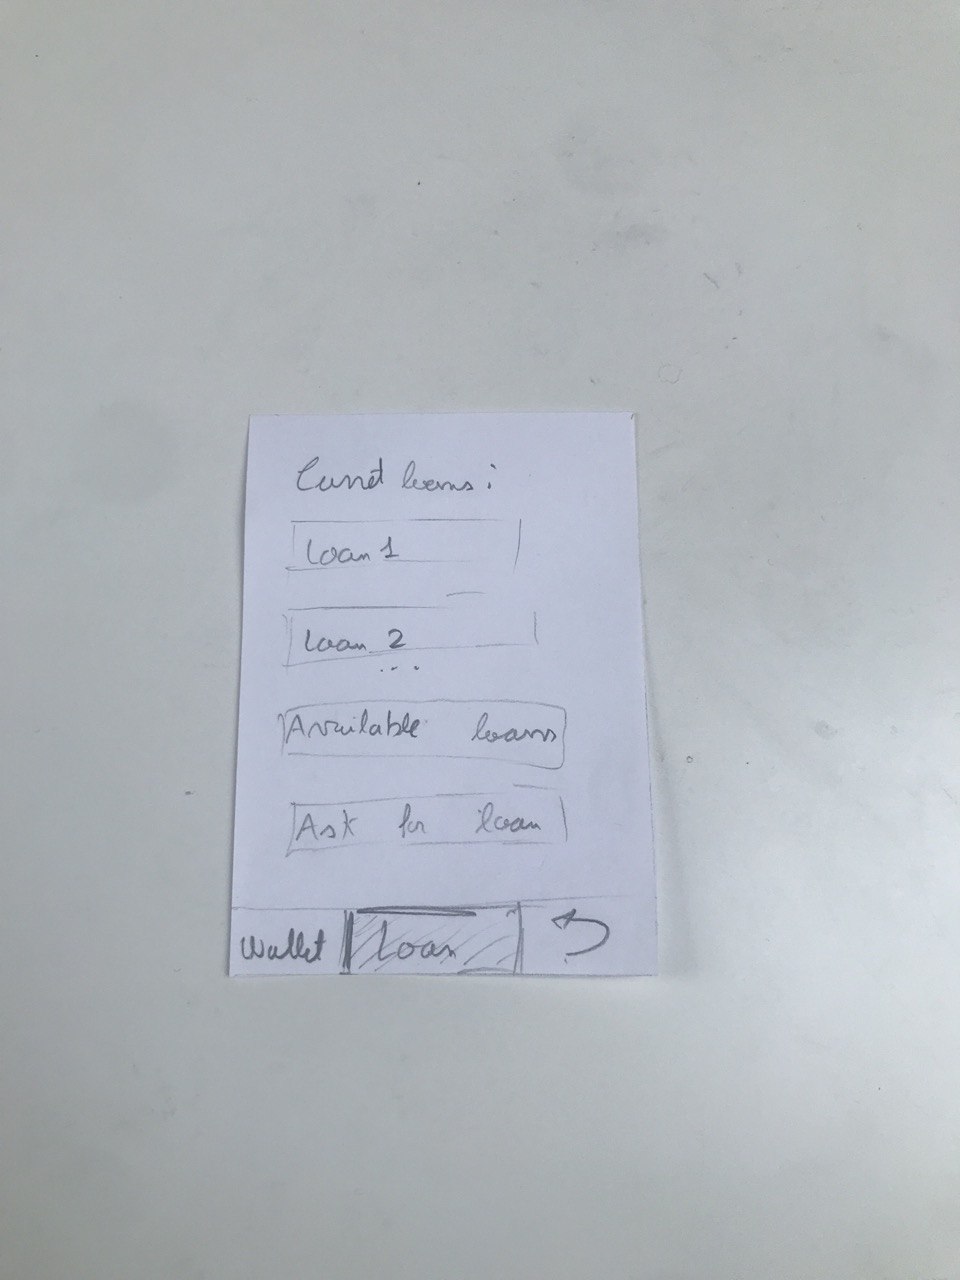 Current loans :
Loan 1
Loan 2
...
Available loans
Ask for loan
Wallet Loan